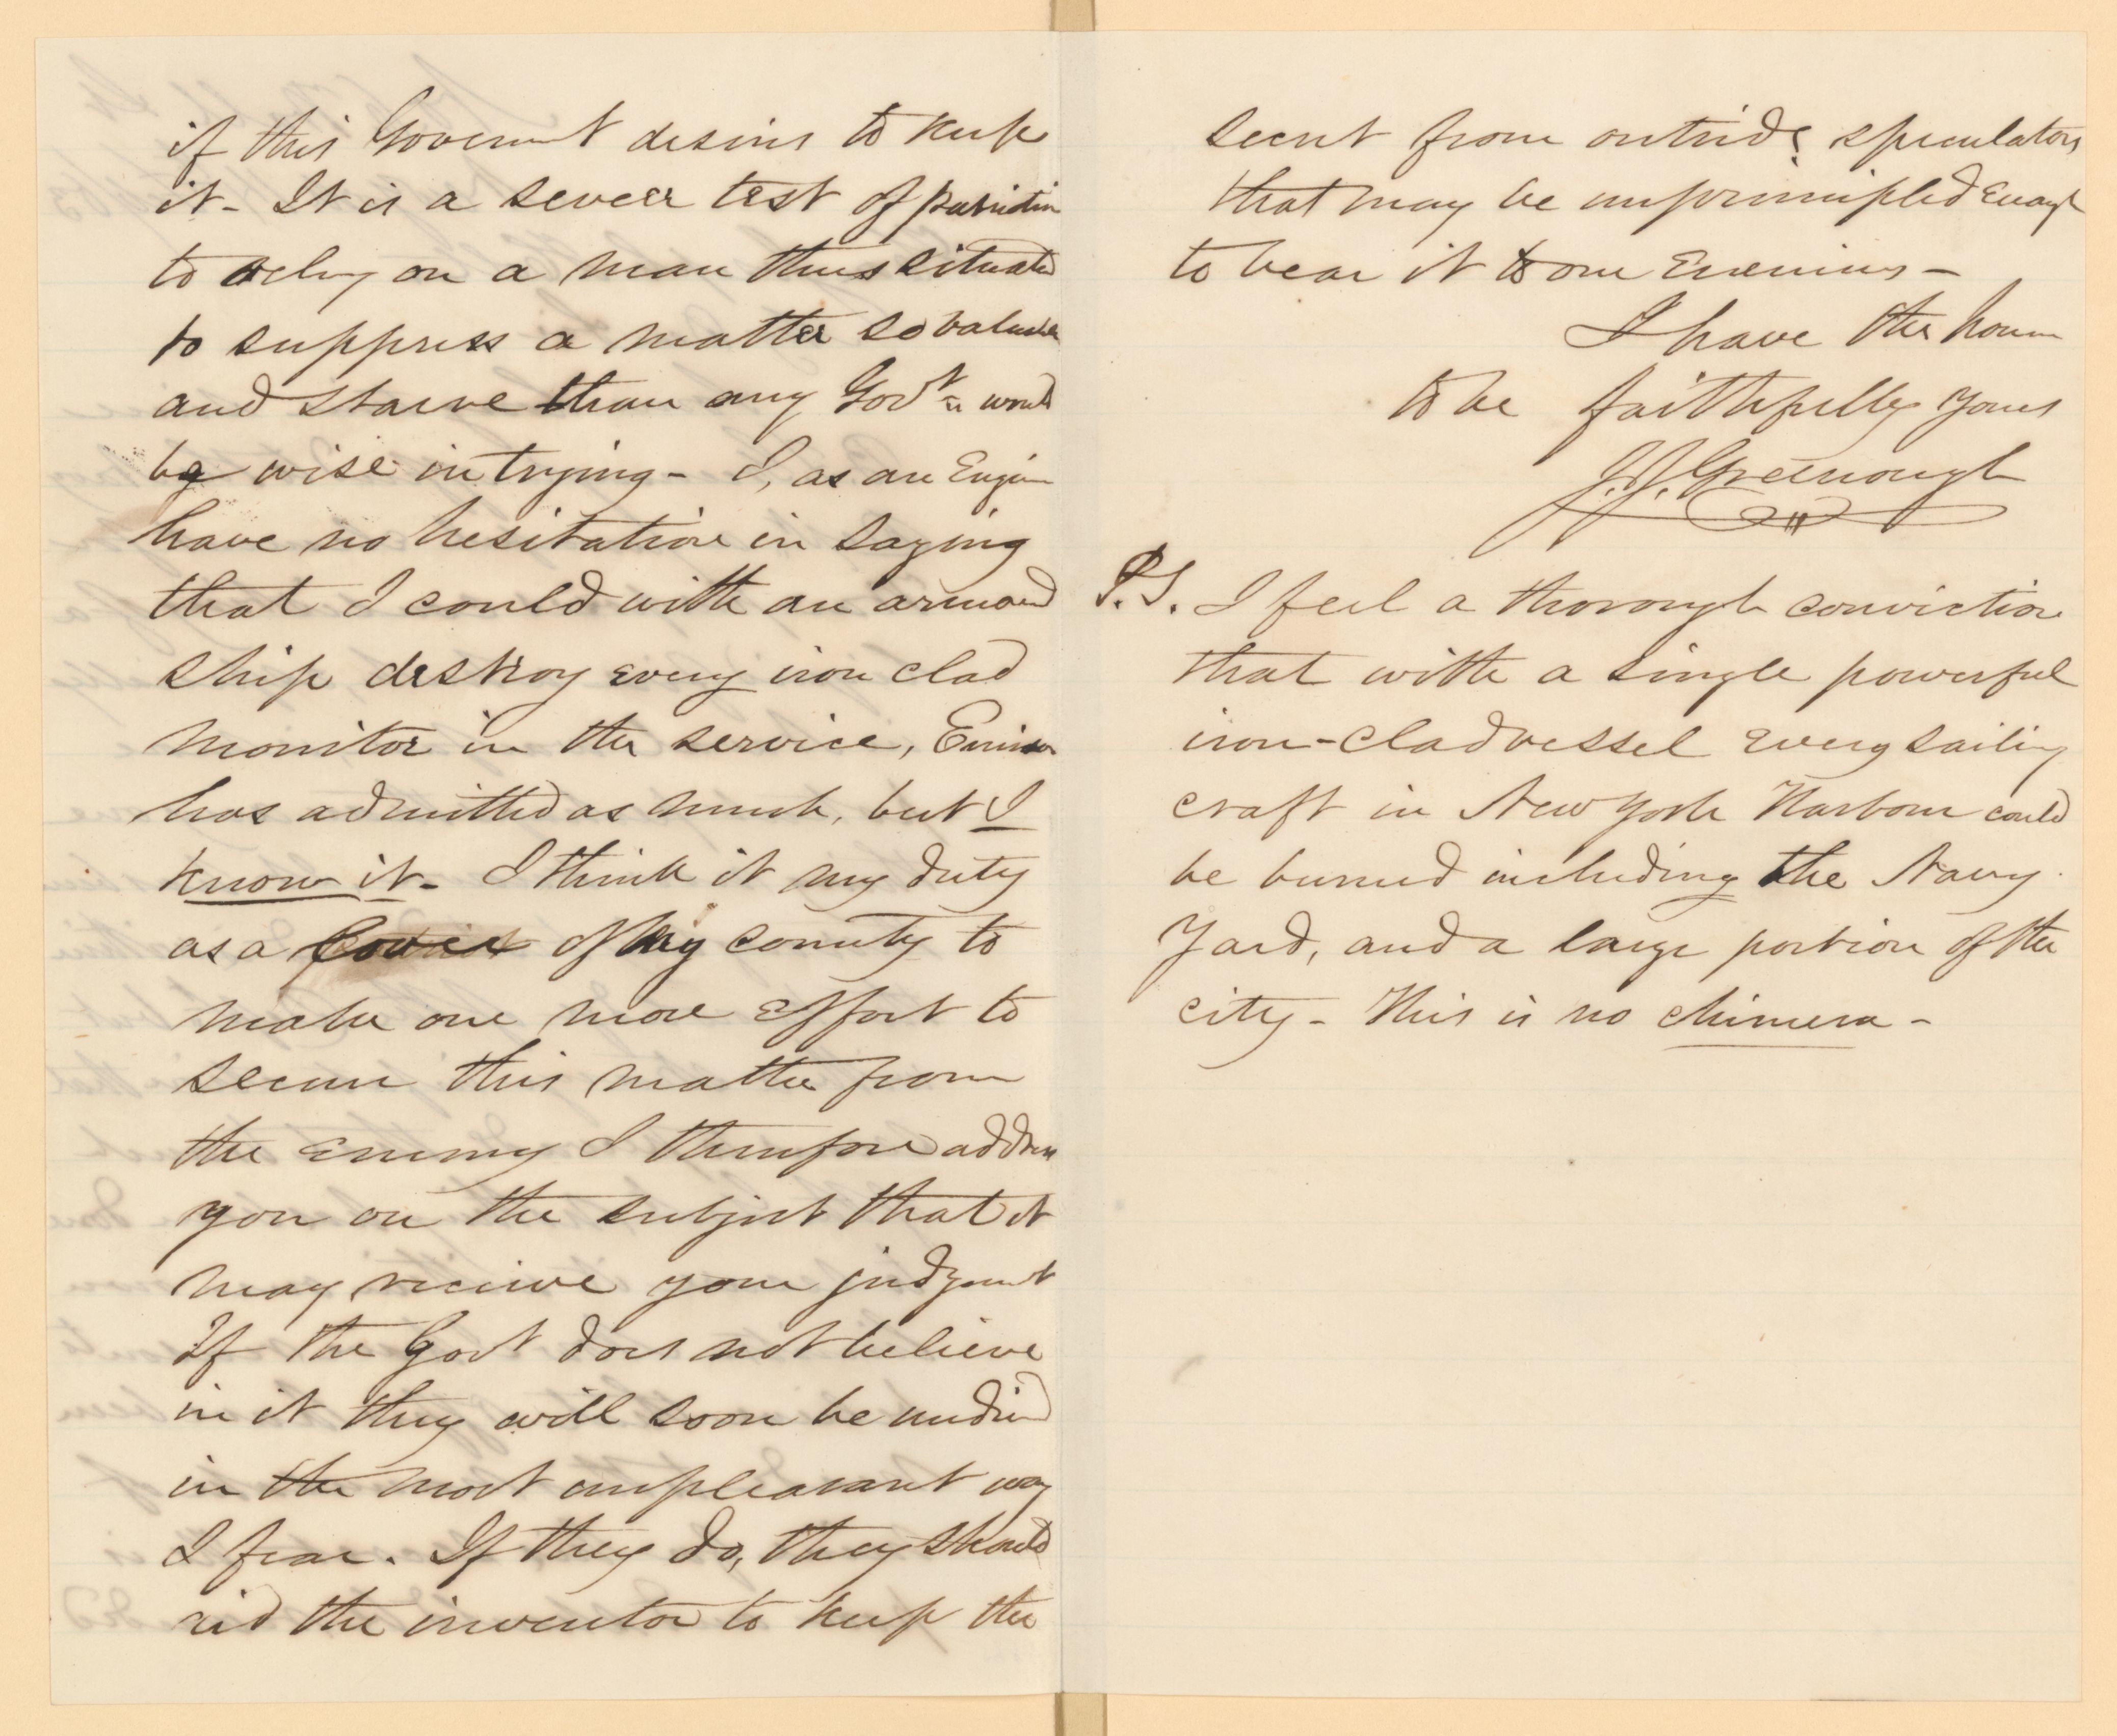 if this Goverment desires to keep
it - It is a severe test of patriotism
to rely on a man thus situated
to suppress a matter so valuable
and starve than any Govt would
be wise in trying - I, as an Engineer
have no hesitation in saying
that I could with an armored
ship destroy every iron clad
monitor in the service, Ericsson
has admitted as much, but I
know it - I think it my duty
as a of my country to
make one more effort to
secure this matter from
the enemy I therefore address
you on the subject that it
may receive your judgment
If the Govt does not believe
in it they will soon be undeceived
in the most unpleasant way
I fear. If they do, they should
aid the inventor to keep the
secret from outside speculators
that may be unprincipled enough
to bear it to our Enemies -
I have the honor
to be faithfully yours
J.J. Greenough
P.S. I feel a thorough conviction
that with a single powerful
iron-clad vessel every sailing
craft in New York Harbour could
be burned including the Navy
Yard, and a large portion of the
city - This is no chimera -